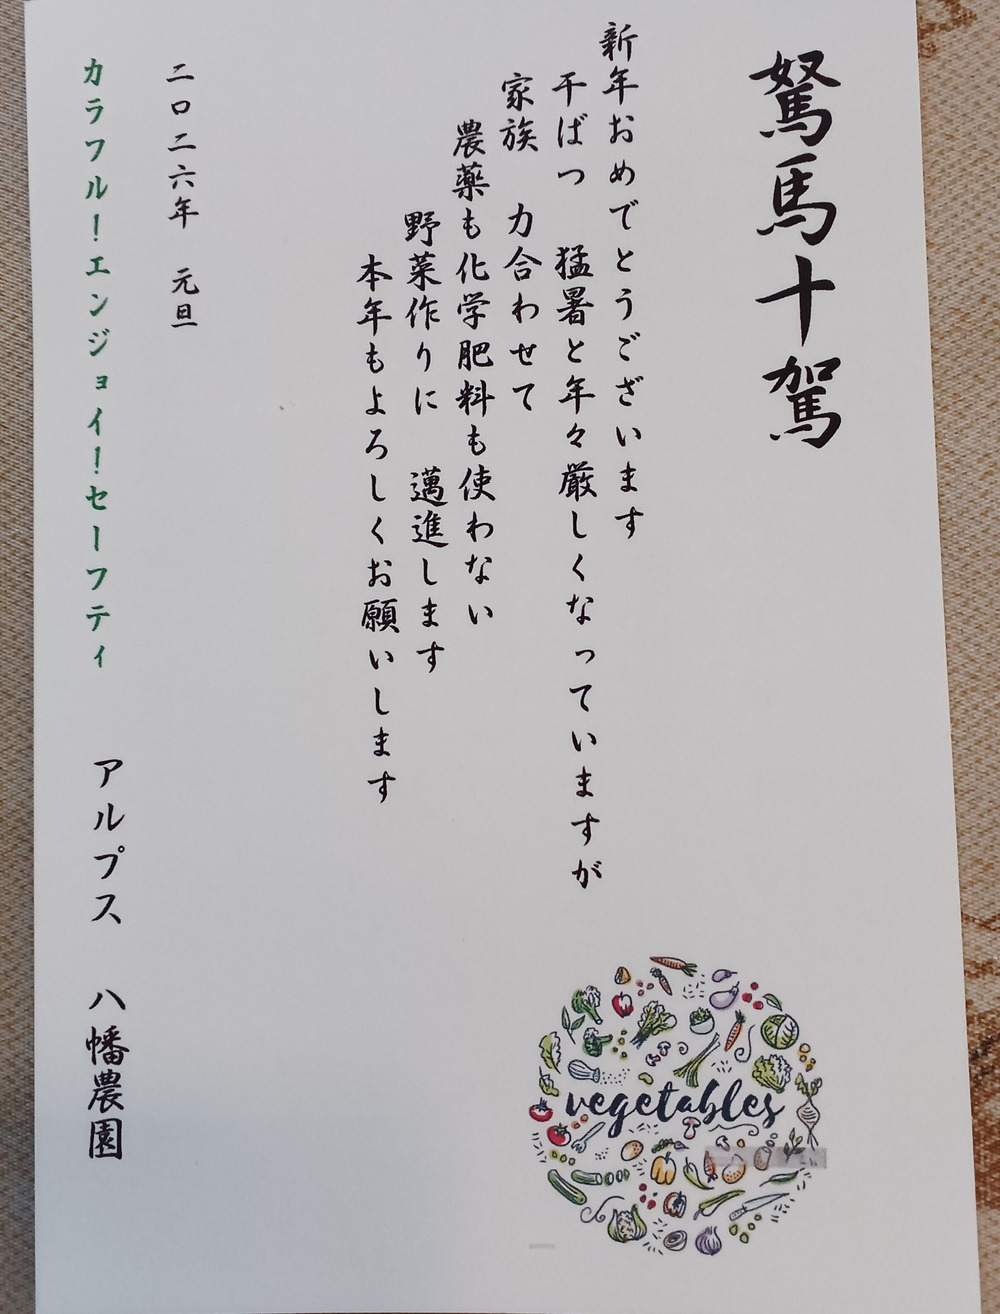 駑馬十駕
新年おめでとうございます
干ばつ 猛暑と年々厳しくなっていますが
家族 力合わせて
農薬も化学肥料も使わない
野菜作りに 邁進します
本年もよろしくお願いします
二〇二六年 元旦
カラフル！エンジョイ！セーフティ アルプス 八幡農園
vegetables